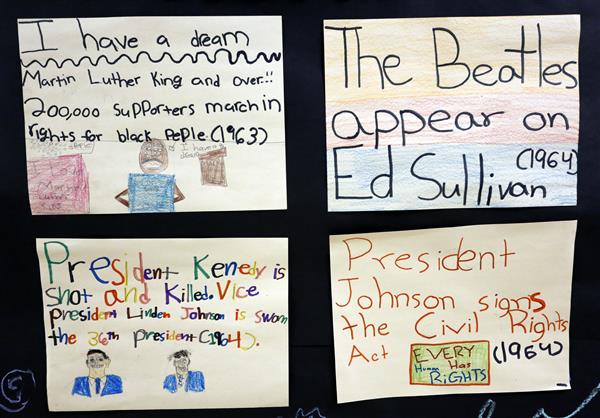 I have a dream
Martin Luther King and over!!!
200,000 supporters march in
rights for black people (1963)
I have a
dream
The Beatles
appear on
Ed Sullivan
(1964)
President Kenedy is
shot and Killed. Vice
president Linden Johnson is sworn
the 36th president (1964).
President
Johnson signs
the Civil Rights
Act
(1964)
EVERY
Human Has
RiGHTS